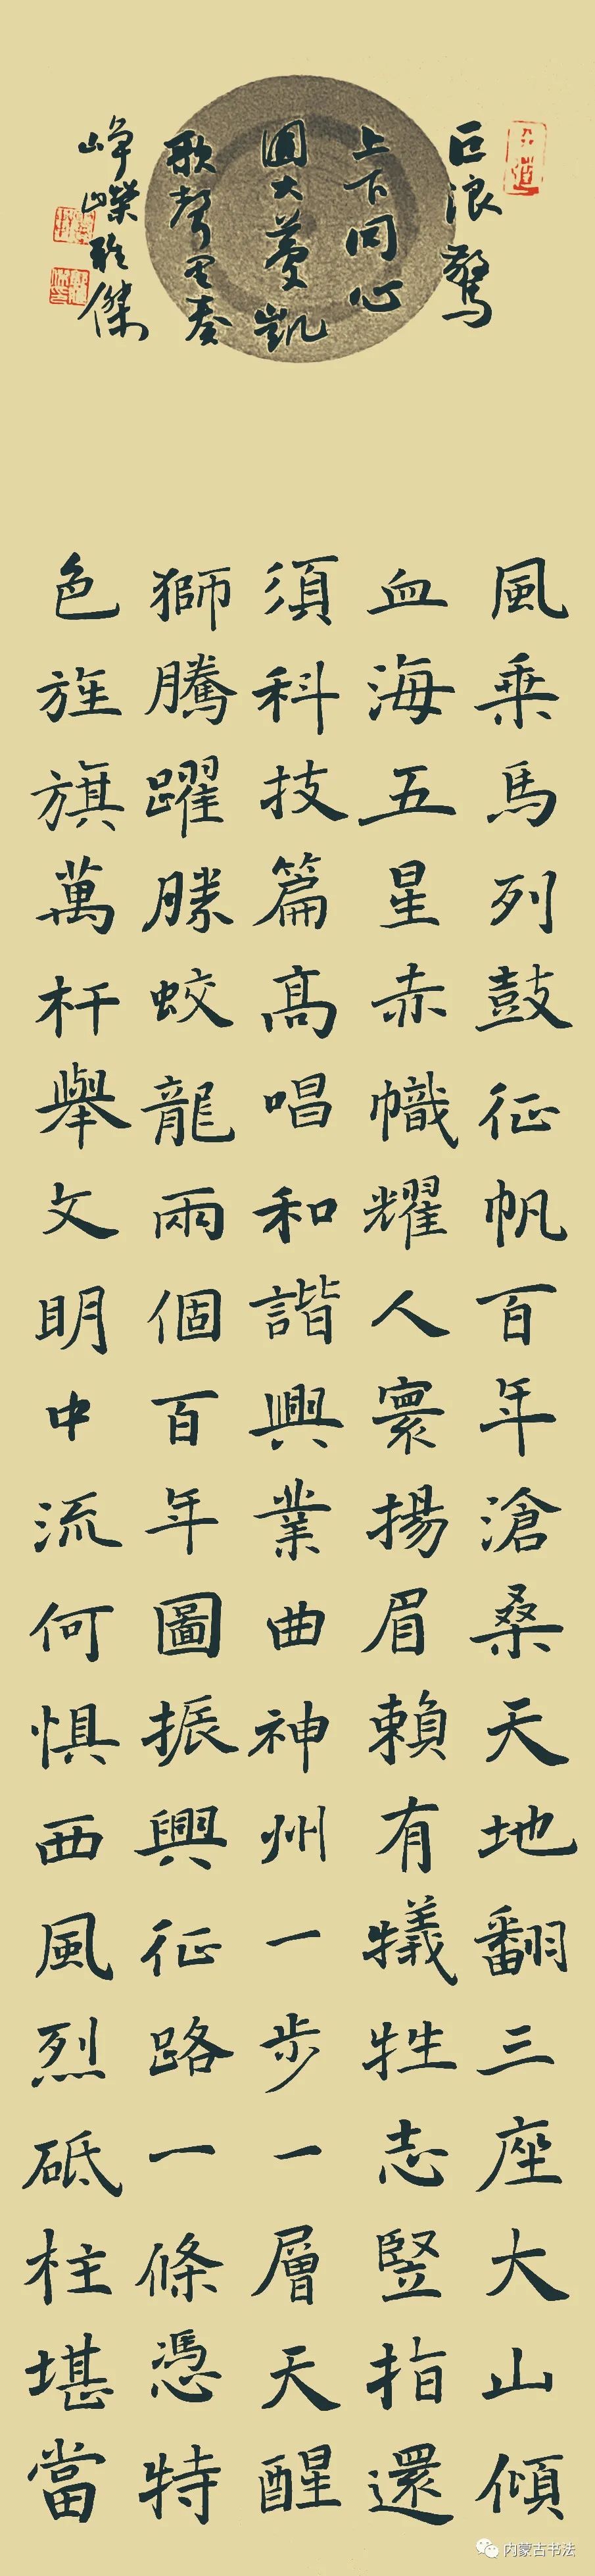 風乘馬列鼓征帆百年滄桑天地翻三座大山傾
血海五星赤幟耀人寰揚眉賴有犧牲志豎指還
須科技篇高唱和諧興業曲神州一步一層天醒
獅騰躍勝蛟龍兩個百年圖振興征路一條憑特
色旌旗萬杆舉文明中流何懼西風烈砥柱堪當
巨浪驚
上下同心
圓大夢凱
歌聲奏
崢嶸雅傑
内蒙古书法